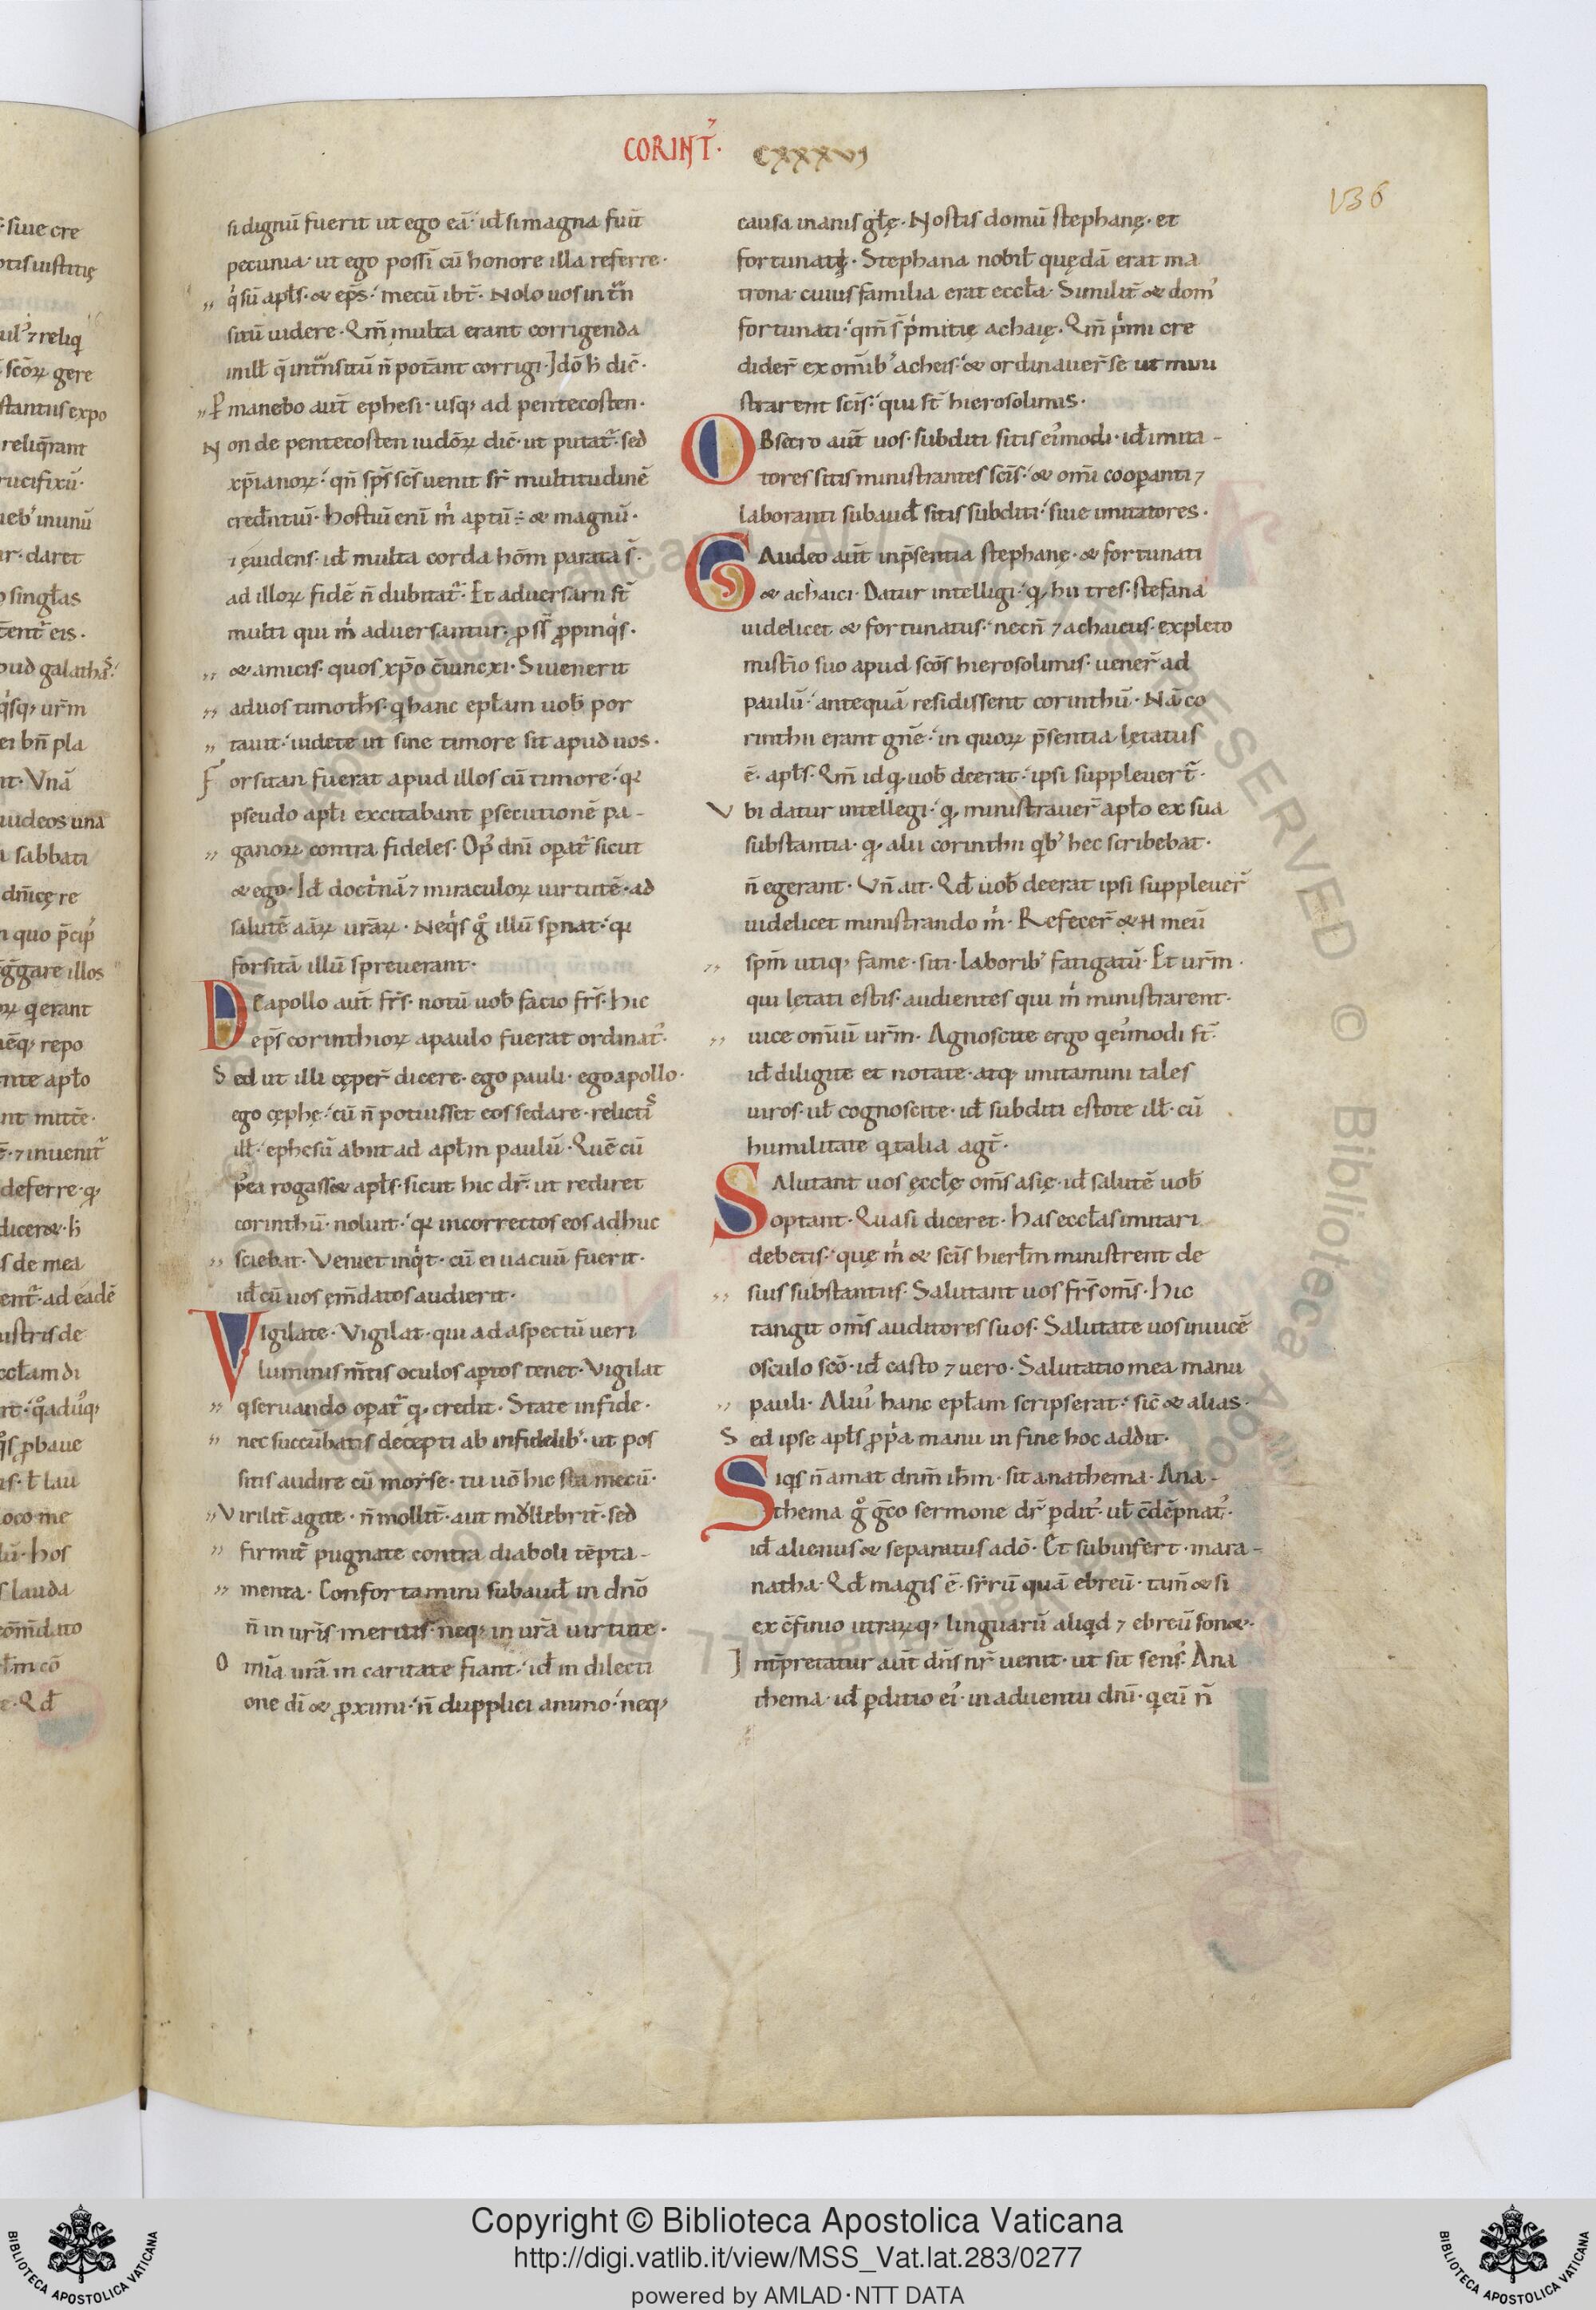 CORINT̄· CXXXVJ
136
si dignū fuerit ut ego eā· id̄ si magna fuīt
pecunia· ut ego possī cū honore illa referre·
q' sū apl̄s· & ep̄s· mecū ibt̄· Nolo uos in tn̄
situ uidere· Qm̄ multa erant corrigenda
in ill̄ q̄ in tn̄situ n̄ potānt corrigi· Jdō h̄ dic̄·
P manebo aut̄ ephesi· usq; ad pentecosten·
Non de pentecosten iudōꝝ dic̄· ut putat̄· sed
xp̄ianoꝝ· qn̄ sp̄s sc̄s uenit sr̄ multitudinē
cred̄ntiū· hostiū enī m̄ aptū ÷ & magnū·
⁊ euidens· id̄ multa corda hōm parata s̄·
ad illoꝝ fidē n̄ dubitat̄· Et aduersarii st̄
multi qui m̄ aduersantur· ꝓ ss̄ ꝓpinq's·
& amicis· quos xp̄o c̄iunexi· Si uenerit
ad uos timoth̄s· q hanc epl̄am uob̄ por
tauit· uidete ut sine timore sit apud uos·
Forsitan fuerat apud illos cū timore· qꝛ
pseudo apl̄i excitabant ꝑsecutionē pa-
ganoꝝ contra fideles· Op' dn̄i opat̄ sicut
& ego· Id̄ doct̄nā ⁊ miraculoꝝ uirtutē· ad
salutē aāꝝ urāꝝ· Neq's g° illū spnat· qꝛ
forsitā illū spreuerant·
De apollo aut̄ frs̄· notū uob̄ facio frs̄· hic
ep̄s corinthioꝝ a paulo fuerat ordinat'·
Sed ut illi cęper̄ dicere· ego pauli· ego apollo·
ego cęphę· cū n̄ potuisset eos sedare· relictis
ill̄· ephesū abiit ad apl̄m paulū· Quē cū
p'ea rogass& apl̄s· sicut hic dr̄· ut rediret
corinthū· noluit· qꝛ incorrectos eos adhuc
sciebat· Veniet inq't· cū ei uacuū fuerit·
id̄ cū uos em̄datos audierit·
Vigilate· Vigilat· qui ad aspectū ueri
luminis m̄tis oculos aptos tenet· Vigilat
q seruando opat̄ q̨ credit· State in fide·
nec succūbatis decepti ab infidelib'· ut pos
sitis audire cū morse· tu uō hic sta mecū·
Virilit̄ agite· n̄ mollit̄· aut muliebrit̄· sed
firmit̄ pugnate contra diaboli tēpta-
menta· Confortamini subaud̄ in dn̄o
n̄ in uris̄ meritis· neq; in urā uirtute·
Omīa urā in caritate fiant· id̄ in dilecti
one dī & ꝓximi· n̄ dupplici animo· neq;
causa inanis gl̄ę· Nostis domū stephanę· et
fortunati· Stephana nobil̄ quędā erat ma
trona· cuius familia erat eccl̄a· Similit̄ & dom'
fortunati· qm̄ s̄ p'mitię achaię· Qm̄ p'mi cre
dider̄ ex om̄ib' acheis· & ordinauer̄ se ut mini
strarent sc̄is· qui st̄ hierosolimis·
Obsecro aut̄ uos· subditi sitis ei'modi· id̄ imita-
tores sitis ministrantes sc̄is· & om̄i coopanti ⁊
laboranti subaud̄ sitis subditi· siue imitatores·
Gaudeo aut̄ in p̄sentia stephanę· & fortunati
& achaici· Datur intelligi· q̨ hii tres· stefana
uidelicet & fortunatus· necn̄ ⁊ achaicus· expleto
mist̄io suo apud scōs hierosolimis· uener̄ ad
paulū· antequā residissent corinthū· Nā co
rinthii erant gn̄e· in quoꝝ p̄sentia lętatus
ē· apl̄s· Qm̄ id q̨ uob̄ deerat· ipsi suppleuert̄·
Vbi datur intellegi· q̨ ministrauer̄ apl̄o ex sua
substantia· q̨ alii corinthii qb' hec scribebat·
n̄ egerant· Vn̄ ait· Qd̄ uob̄ deerat ipsi suppleuer̄
uidelicet ministrando m̄· Refecer̄ & H meū
spm̄ utiq; fame· siti· laborib' fatigatū· Et urm̄·
qui lętati estis· audientes qui m̄ ministrarent·
uice om̄iū urm̄· Agnoscite ergo q ei'modi st̄·
id̄ diligite et notate· atq; imitamini tales
uiros· ul̄ cognoscite· id̄ subditi estote ill̄· cū
humilitate q talia agt̄·
Salutant uos ęccl̄ę om̄s asię· id̄ salutē uob̄
optant· Quasi diceret· Has eccl̄as imitari
debetis· quę m̄ & sc̄is hierl̄m ministrent de
suis substantiis· Salutant uos frs̄ om̄s· Hic
tangit om̄s auditores suos· Salutate uos inuicē
osculo scō· id̄ casto ⁊ uero· Salutatio mea manu
pauli· Aliu' hanc epl̄am scripserat· sic̄ & alias·
Sed ipse apl̄s ꝓp'a manu in fine hoc addit·
Siqs n̄ amat dnm̄ ih̄m· sit anathema· Ana-
thema g° g̅co sermone dr̄ ꝑdit'· ul̄ c̄dēpnat'·
id̄ alienus & separatus a dō· Et subinfert· mara-
natha· Qd̄ magis ē· sr̄rū quā ebreū· tam̄ & si
ex c̄finio utraꝝq; linguarū aliqd ⁊ ebreū son&·
Int̄pretatur aut̄ dn̄s nr̄ uenit· ut sit sens'· Ana
thema· id̄ ꝑditio ei' in aduentu dn̄i· q eū n̄
Copyright © Biblioteca Apostolica Vaticana
http://digi.vatlib.it/view/MSS_Vat.lat.283/0277
powered by AMLAD·NTT DATA
BIBLIOTECA APOSTOLICA VATICANA
BIBLIOTECA APOSTOLICA VATICANA